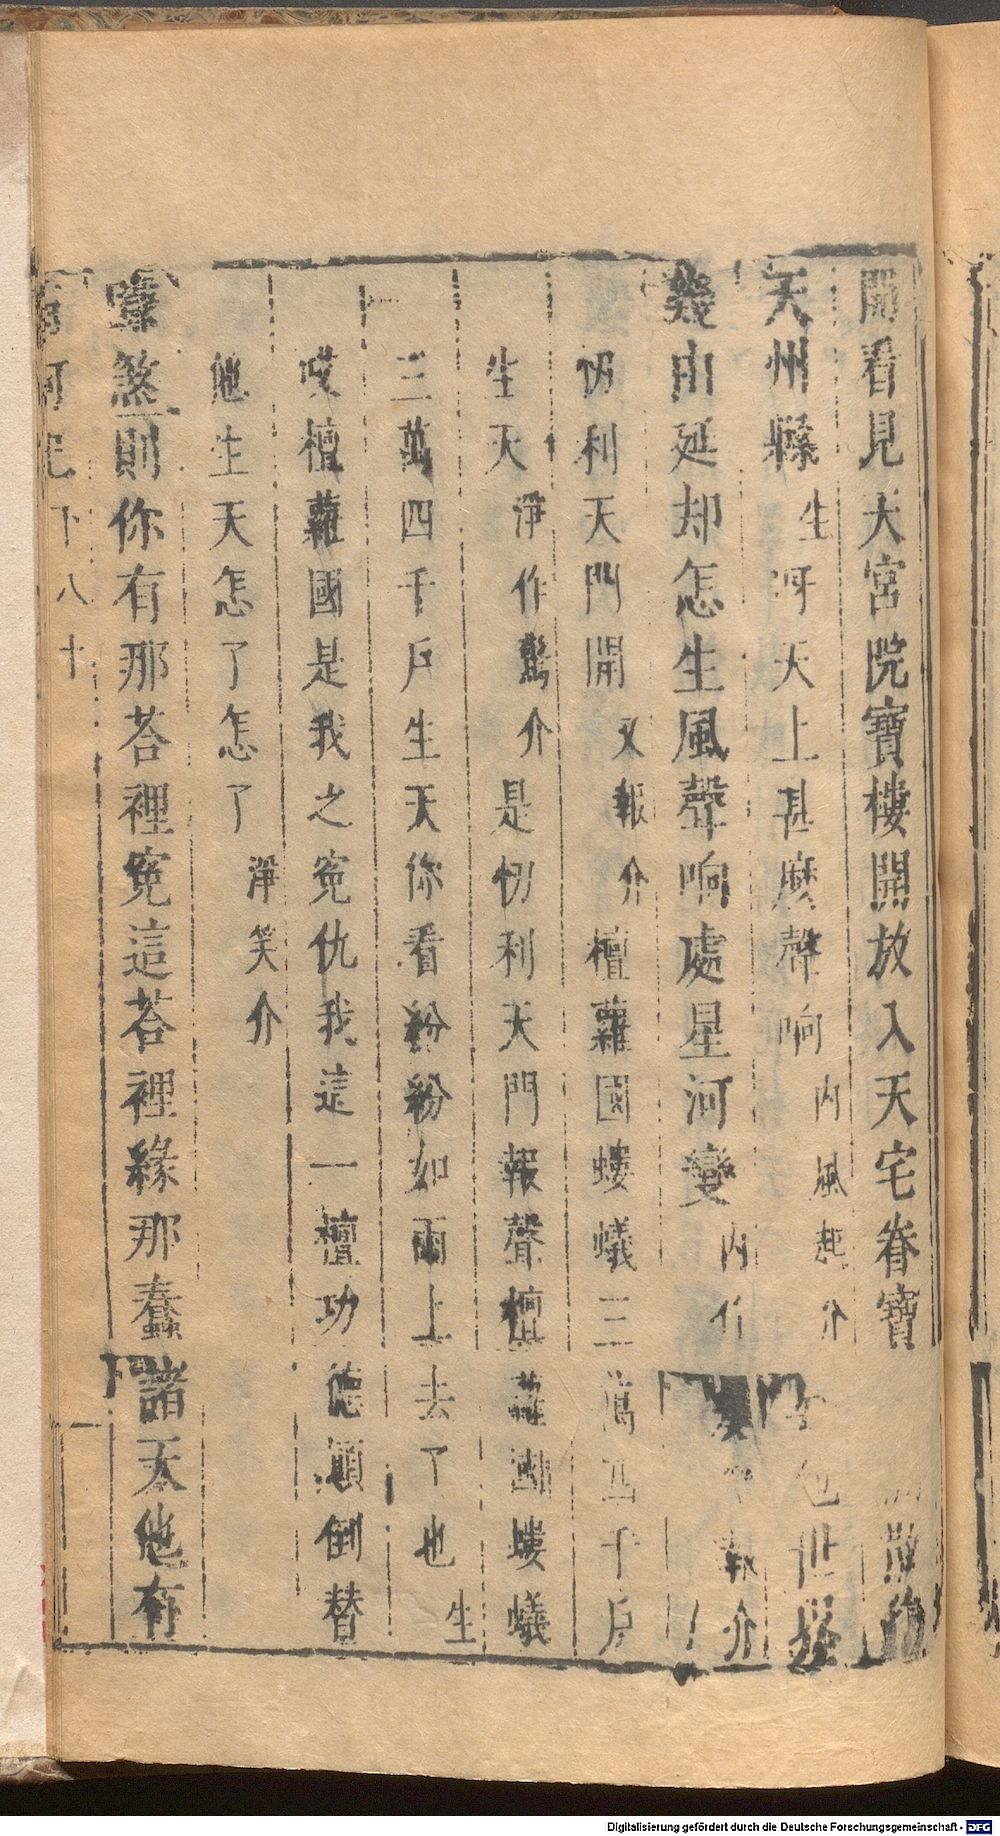 開看見大宮院寶樓開放入天宅眷寶
天州縣生呀天上甚麼聲响内風起介世
幾由延却怎生風聲响處星河變内作報介
忉利天門開又報介檀蘿國螻蟻三萬四千戶
生天淨作驚介是忉利天門報聲檀蘿國螻蟻
三萬四千戶生天你看紛紛如雨上去了也生
哎檀蘿國是我之寃仇我這一檀功德顛倒替
他生天怎了怎了淨笑介
煞則你有那荅裡寃這荅裡緣那蠢諸天他有
南柯記下八十
Digitalisierung gefördert durch die Deutsche Forschungsgemeinschaft - DFG